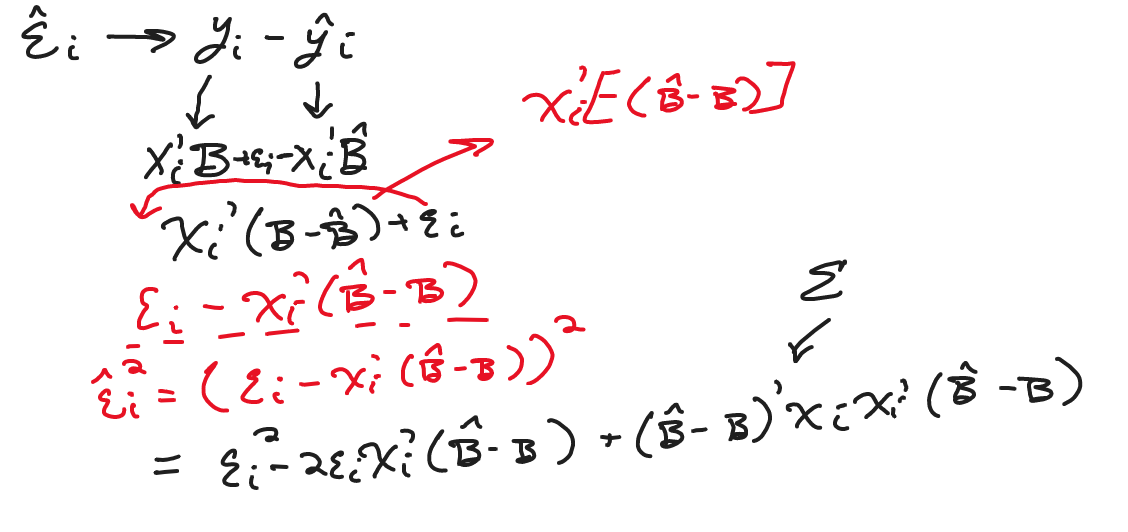 ε̂ᵢ → yᵢ - ŷᵢ
xᵢ'[E(B̂-B)]
xᵢ'B+εᵢ-xᵢ'B̂
xᵢ'(B-B̂)+εᵢ
εᵢ - xᵢ'(B̂-B)
Σ
ε̂ᵢ² = (εᵢ - xᵢ'(B̂-B))²
= εᵢ² - 2εᵢxᵢ'(B̂-B) + (B̂-B)'xᵢxᵢ'(B̂-B)